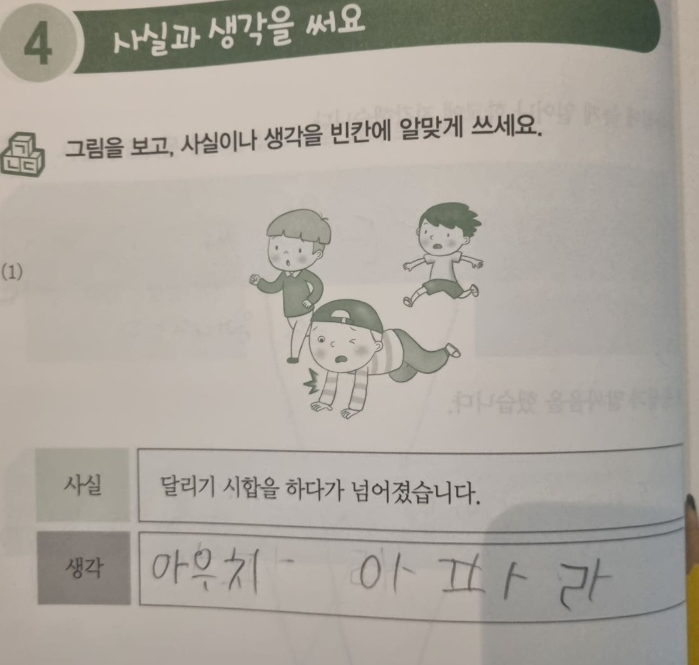 4 사실과 생각을 써요
그림을 보고, 사실이나 생각을 빈칸에 알맞게 쓰세요.
(1)
사실 달리기 시합을 하다가 넘어졌습니다.
생각 아우치 아 파 라